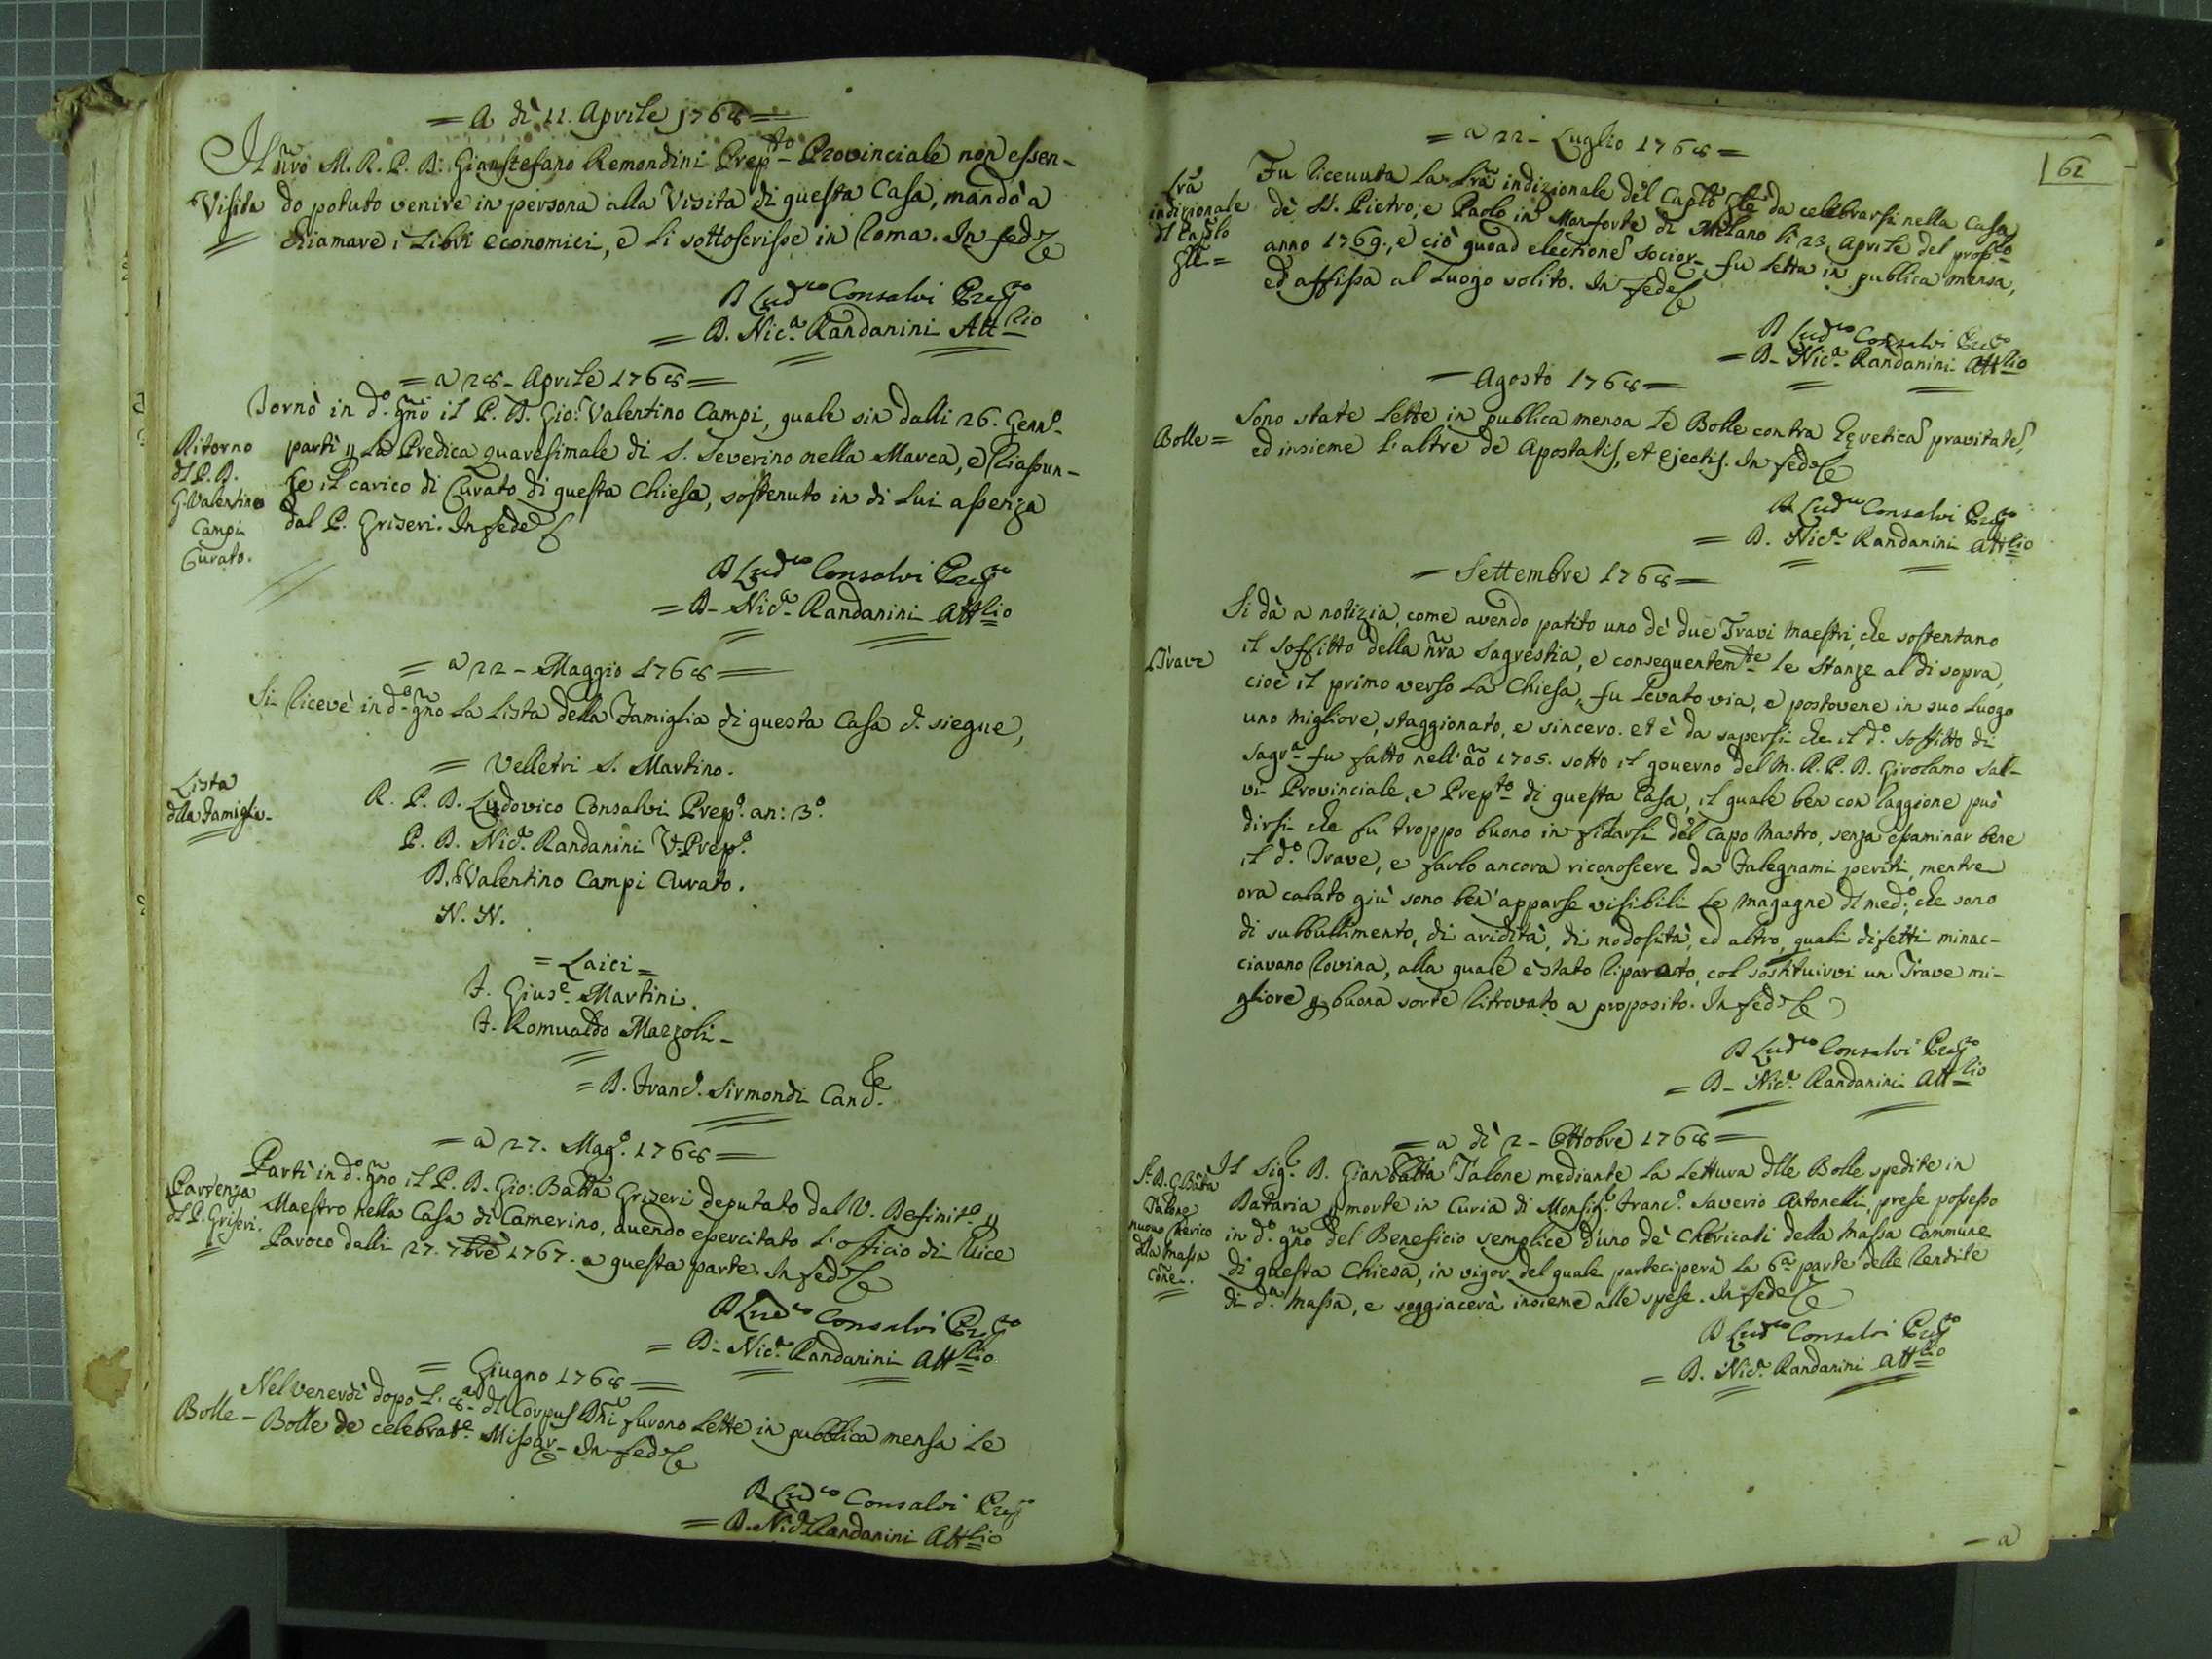 = A dì 11. Aprile 1768 =
Il nro M. R. P. D: Gianstefano Remondini Prepto Provinciale non essen-
Visita do potuto venire in persona alla Visita di questa Casa, mandò a
chiamare i Libri economici, e li sottoscrisse in Roma. In fede
D Ludco Consalvi Prepto
= D. Nica Randanini Attlio
= a 28 - Aprile 1768 =
Tornò in do. gno il P. D. Gio: Valentino Campi, quale sin dalli 26. Genno.
Ritorno
dl P. D.
G. Valentino
Campi
Curato.
partì la Predica quaresimale di S. Severino nella Marca, e riassun-
se il carico di Curato di questa Chiesa, sostenuto in di lui assenza
dal P. Griseri. In fede
D Ludco Consalvi Prepto
= D- Nica Randanini Attlio
= a 22 - Maggio 1768 =
Si ricevè in do gno la Lista della Famiglia di questa Casa d. siegue,
Lista
dlla Famiglia.
= Velletri S. Martino.
R. P. D. Ludovico Consalvi Prepo. an: 3o.
P. D. Nica. Randanini V.Prepo.
D. Valentino Campi Curato.
N. N.
= Laici =
F. Giuse. Martini.
F. Romualdo Mazzoli -
= D. Franco. Sirmondi Cance.
= a 27. Mago. 1768 =
Partenza
dl P. Griseri.
Partì in do. gno il P. D. Gio: Batta Griseri deputato dal V. Definito.
Maestro nella Casa di Camerino, avendo esercitato l'officio di Vice
Paroco dalli 27. 7bre 1767. a questa parte. In fede
D Ludco Consalvi Prepto
= D- Nica. Randanini Attlio
= Giugno 1768 =
Nel venerdì dopo l'8a dl Corpus Dni furono lette in pubblica mensa le
Bolle - Bolle de celebrate. Missar- In fede
D Ludco Consalvi Prepto
= D. Nica Randanini Attlio
62
= a 22 - Luglio 1768 =
Lra
indizionale
dl Caplo
gle =
Fu ricevuta la Lra indizionale del Caplo gle da celebrarsi nella Casa
de' SS. Pietro, e Paolo in Monforte di Milano li 23. Aprile del prossmo
anno 1769., e ciò quoad electione socior-, fu letta in publica mensa,
ed affissa al luogo solito. In fede
D Ludco Consalvi Prepto
= D- Nica. Randanini Attlio
- Agosto 1768 -
Bolle =
Sono state lette in publica mensa le Bolle contra heretica pravitate,
ed insieme l'altre de Apostatis, et ejectis. In fede
D Ludco Consalvi Prepto
= D. Nica. Randanini Attlio
- Settembre 1768 -
Trave
Si dà a notizia, come avendo patito uno de' due Travi maestri, che sostentano
il soffitto della nra Sagrestia, e conseguentemte le stanze al di sopra,
cioè il primo verso la Chiesa, fu levato via, e postovene in suo luogo
uno migliore, staggionato, e sincero. et è da sapersi che il do. soffitto di
Sagra. fu fatto nell'ao 1705. sotto il governo del M. R. P. D. Girolamo Sal-
vi- Provinciale, e Prepto di questa Casa, il quale ben con raggione può
dirsi che fu troppo buono in fidarsi del Capo Mastro, senza esaminar bene
il do. Trave, e farlo ancora riconoscere da Falegnami periti, mentre
ora calato giù sono ben' apparse visibili le magagne dl medo., che sono
di subbullimento, di aridità, di nodosità, ed altro, quali difetti minac-
ciavano rovina, alla quale è stato riparato, col sostituirvi un Trave mi-
gliore p buona sorte ritrovato a proposito. In fede
D Ludco Consalvi Prepto
= D- Nica. Randanini Attlio
= a dì 2 - Ottobre 1768 =
Sr. D. G. Batta
Talone
nuovo Cherico
dlla massa
Cone.
Il Sigr. D. Gianbatta Talone mediante la lettura dlle Bolle spedite in
Dataria morte in Curia di Monsigr. Franco. Saverio Antonelli, prese possesso
in do. gno del Beneficio semplice d'uno de' Chericati della Massa Commune
di questa Chiesa, in vigor del quale parteciperà la 6a parte delle Rendite
di da. Massa, e soggiacerà insieme alle spese. In fede
D Ludco Consalvi Prepto
= D. Nica. Randanini Attlio
- a